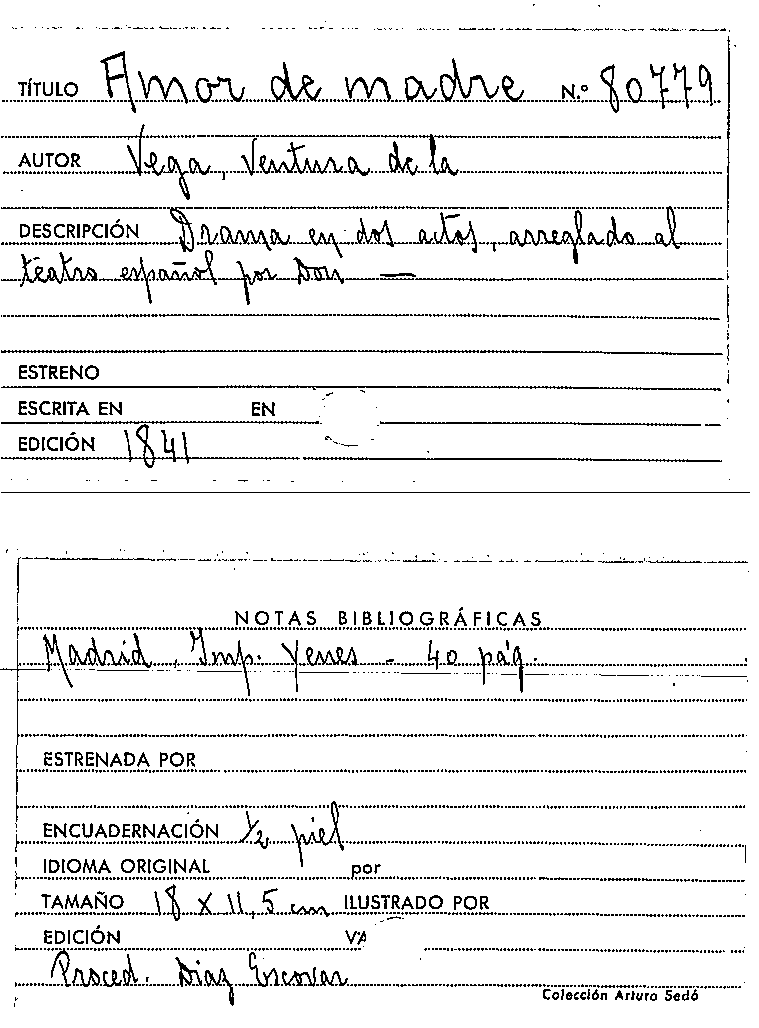 TÍTULO Amor de madre N.º 80779
AUTOR Vega, Ventura de la
DESCRIPCIÓN Drama en dos actos, arreglado al
teatro español por Don —
ESTRENO
ESCRITA EN EN
EDICIÓN 1841
NOTAS BIBLIOGRÁFICAS
Madrid, Imp. Yenes - 40 pág.
ESTRENADA POR
ENCUADERNACIÓN 1/2 piel
IDIOMA ORIGINAL por
TAMAÑO 18 x 11,5 cm ILUSTRADO POR
EDICIÓN
Proced. Diaz Escovar
Colección Arturo Sedó